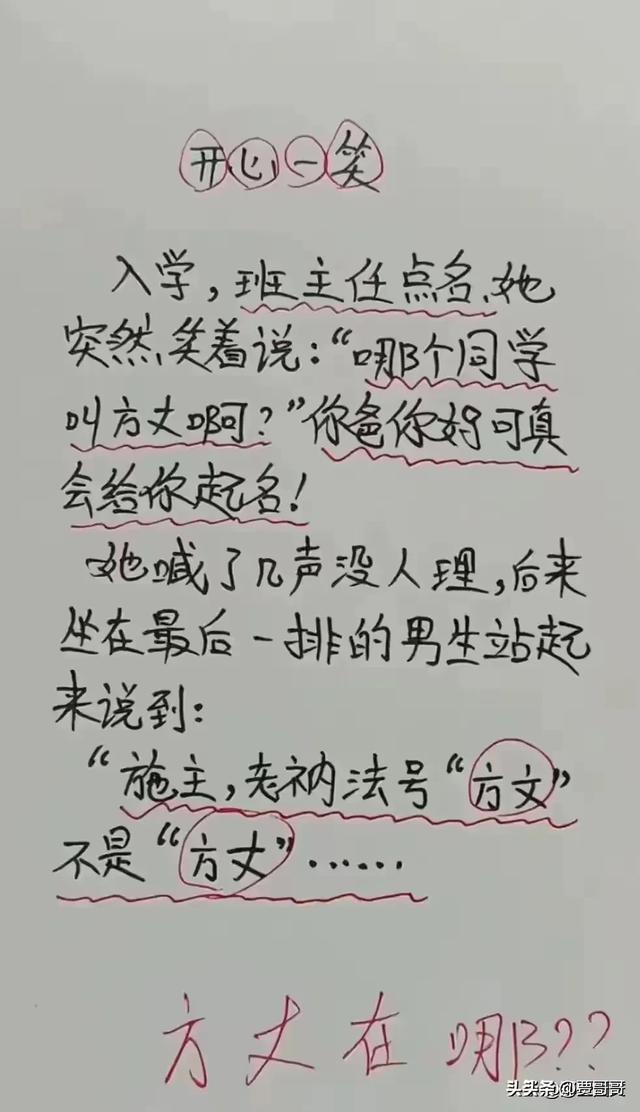 开心一笑
入学，班主任点名、她
突然笑着说：“哪个同学
叫方丈啊？”你爸你好可真
会给你起名！
她喊了几声没人理，后来
坐在最后一排的男生站起
来说到：
“施主，老衲法号“方文”
不是“方丈”……
方丈在哪??
头条@贾哥哥